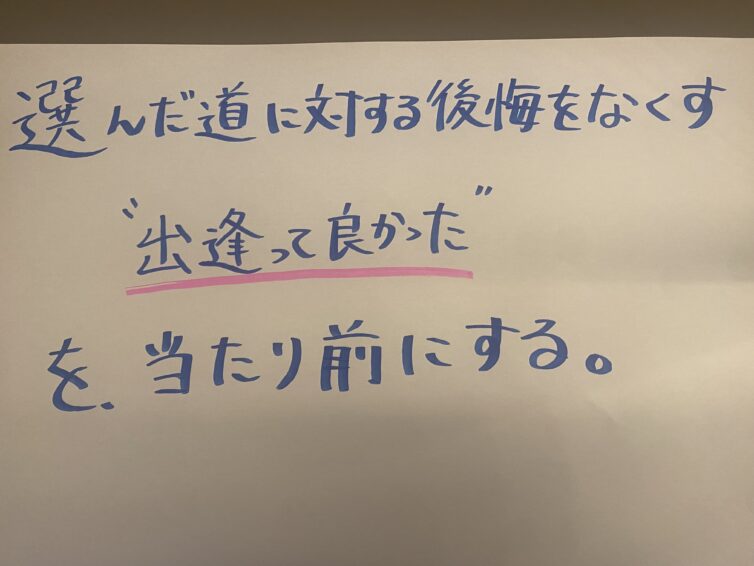 選んだ道に対する後悔をなくす
〝出逢って良かった〞
を、当たり前にする。